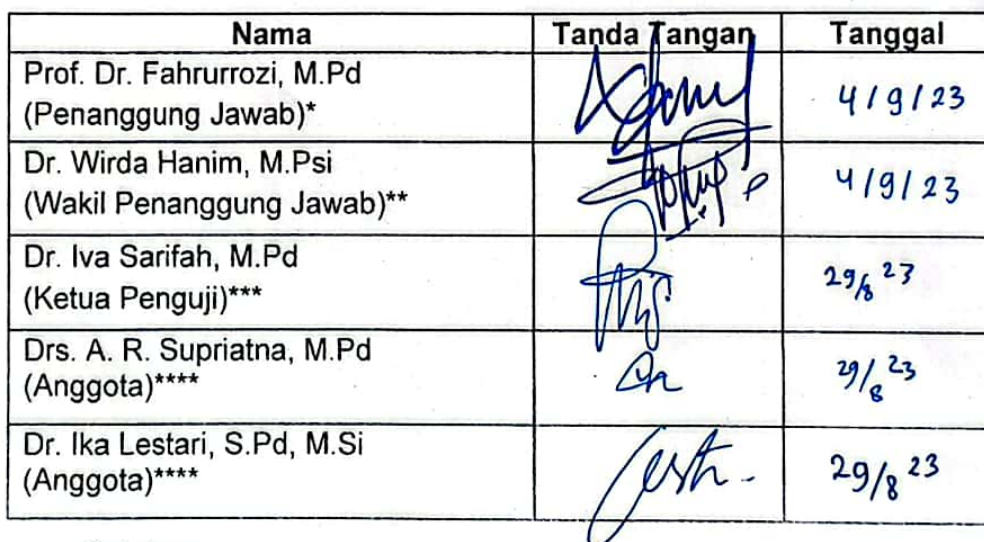 Nama Tanda Tangan Tanggal
Prof. Dr. Fahrurrozi, M.Pd
(Penanggung Jawab)* 4/9/23
Dr. Wirda Hanim, M.Psi
(Wakil Penanggung Jawab)** 4/9/23
Dr. Iva Sarifah, M.Pd
(Ketua Penguji)*** 29/8 23
Drs. A. R. Supriatna, M.Pd
(Anggota)**** 29/8 23
Dr. Ika Lestari, S.Pd, M.Si
(Anggota)**** 29/8 23